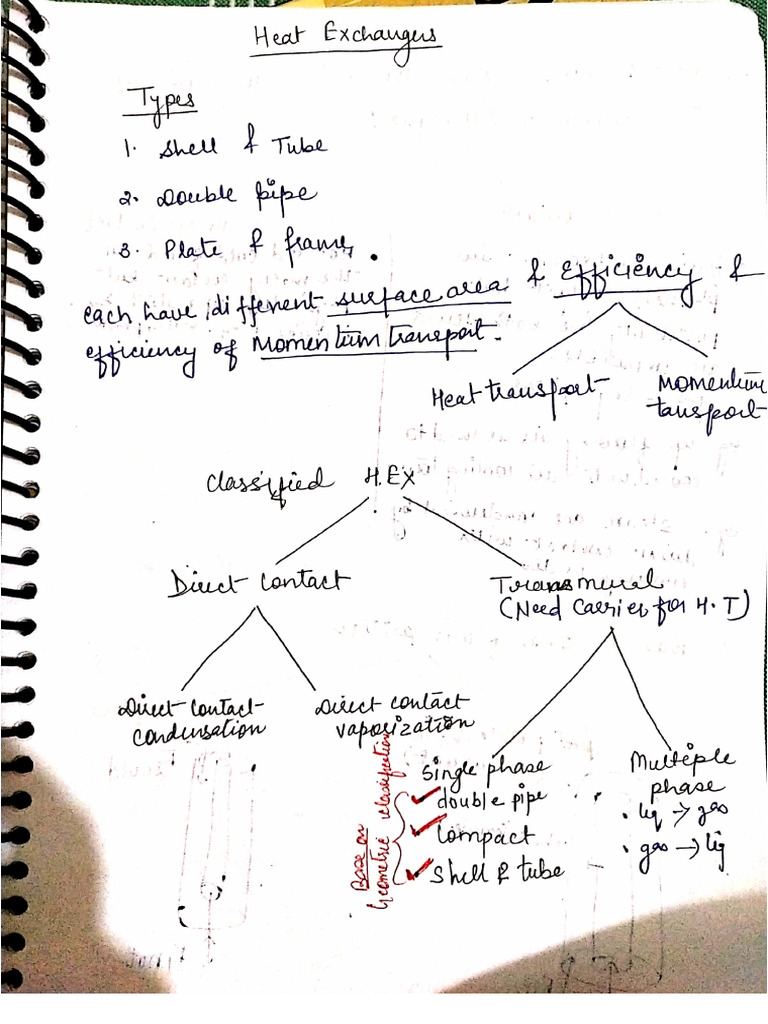 Heat Exchangers
Types
1. Shell & Tube
2. Double pipe
3. Plate & frame.
each have different surface area & Efficiency &
efficiency of Momentum transport.
Heat transport
Momentum
tansport
Classified H.EX
Direct Contact
Transmural
(Need Carrier for H.T)
Direct Contact
condensation
Direct contact
vaporization
Single phase
double pipe
Compact
Shell & tube
Base on
Geometric classification
Multiple
phase
• liq → gas
• gas → liq